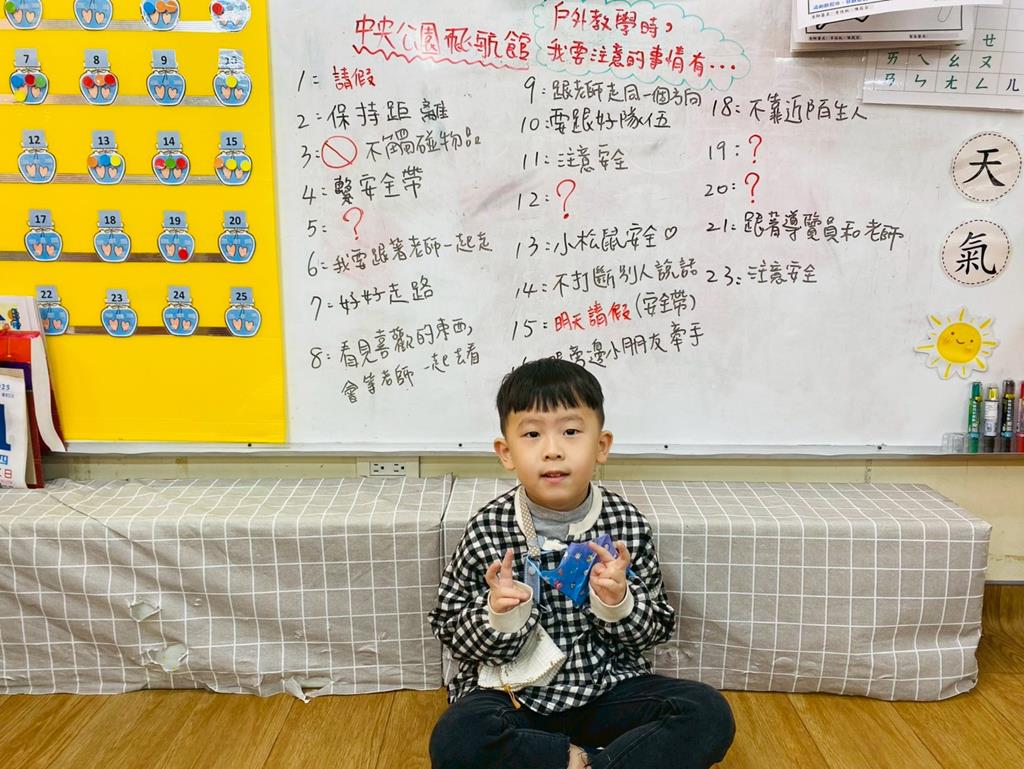 中央公園飛航館
戶外教學時,
我要注意的事情有...
1: 請假
2: 保持距離
3: 不觸碰物品
4: 繫安全帶
5: ?
6: 我要跟著老師一起走
7: 好好走路
8: 看見喜歡的東西,
會等老師一起去看
9: 跟老師走同一個方向
10: 要跟好隊伍
11: 注意安全
12: ?
13: 小松鼠安全♡
14: 不打斷別人說話
15: 明天請假(安全帶)
邊小朋友牽手
18: 不靠近陌生人
19: ?
20: ?
21: 跟著導覽員和老師
23: 注意安全
7 8 9
12 13 14 15
17 18 19 20
22 23 24 25
ㄝ
ㄞ ㄟ ㄠ ㄡ
ㄢ ㄣ ㄤ ㄥ ㄦ
天
氣